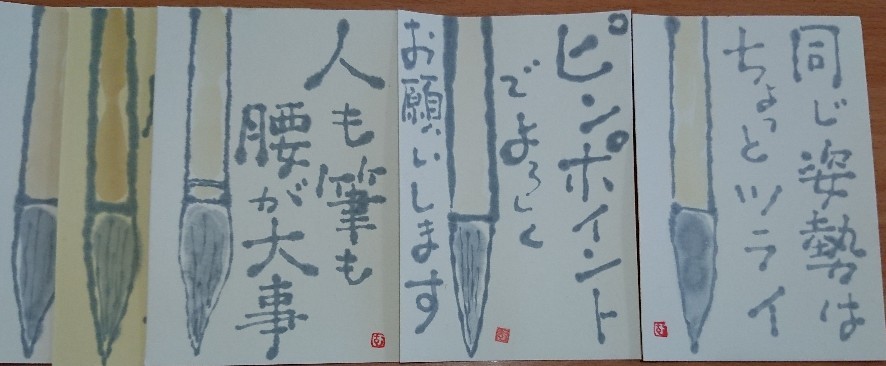 同じ姿勢は
ちょっとツライ
ピンポイント
でよろしく
お願いします
人も筆も
腰が大事